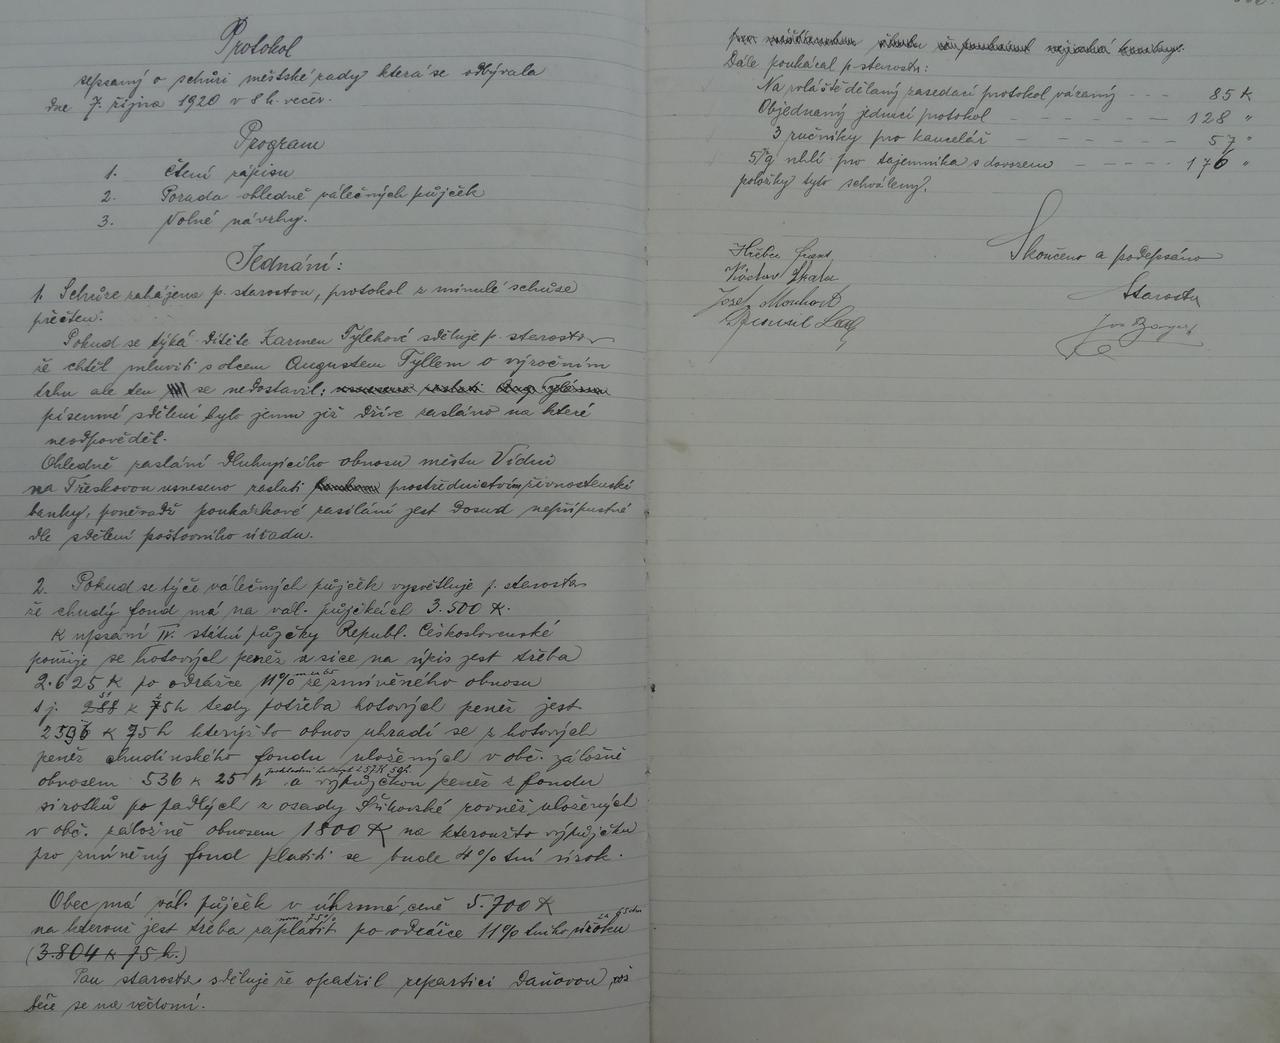 Protokol
sepsaný o schůzi městské rady která se odbývala
dne 7. října 1920 v 8 h. večer.
Program
1. Čtení zápisu
2. Porada ohledně válečných půjček
3. Volné návrhy.
Jednání:
1. Schůze zahájena p. starostou, protokol z minulé schůze
přečten.
Pokud se týká dítěte Karmen Tylehové sděluje p. starosta
že chtěl mluviti s otcem Augustem Tyllem o výročním
trhu ale ten se nedostavil; usneseno zaslati Aug.
písemné sdělení bylo jemu již dříve zasláno na které
neodpověděl.
Ohledně zaslání dluhujícího obnosu městu Vídni
na Třeskovou usneseno zaslati prostřednictvím živnostenské
banky, poněvadž poukázkové zasílání jest dosud nepřípustné
dle sdělení poštovního úřadu.
2. Pokud se týče válečných půjček vysvětluje p. starosta
že chudý fond má na vál. půjčkách 3.500 K.
K upsání IV. státní půjčky Republ. Československé
použije se hotových peněz a sice na úpis jest třeba
2.625 K po odrážce 11% ze zmíněného obnosu
tj. 288 K 75 h tedy potřeba hotových peněz jest
2596 K 75 h kterýžto obnos uhradí se z hotových
peněz chudinského fondu uložených v obč. záložně
pokladní hotovost 257 K 50 h.
obnosem 536 K 25 h a výpůjčkou peněz z fondu
sirotků po padlých z osady rovněž uložených
v obč. záložně obnosem 1800 K na kteroužto výpůjčku
pro zmíněný fond platiti se bude 4% tní úrok.
Obec má vál. půjček v úhrnné ceně 5.700 K
na kterouž jest třeba zaplatit po odrážce 11% tního úroku
(3.804 K 75 h.)
Pan starosta sděluje že opatřil repartici daňovou což
béře se na vědomí.
Dále poukázal p. starosta:
Na zvláště dělaný zasedací protokol vázaný - - - 85 K
Objednaný jednací protokol - - - - - 128 "
3 ručníky pro kancelář - - - - - 57 "
5/q uhlí pro tajemníka s dovozem - - - - 176 "
položky tyto schváleny.
Skončeno a podepsáno
Václav
Josef
Starosta
Jos